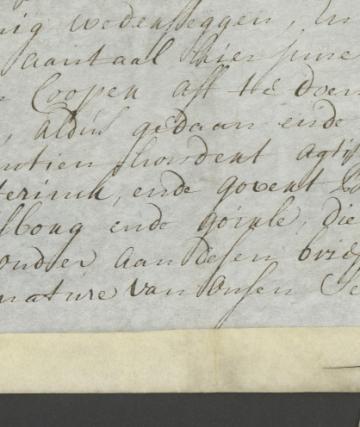 nig wederseggen, en
aantaal hier
Coopen aff te doen
, aldus gedaan ende
ntien hondert agt
terinck, ende govert
lbong ende goirle, die
onder aan desen brie
nature van onsen